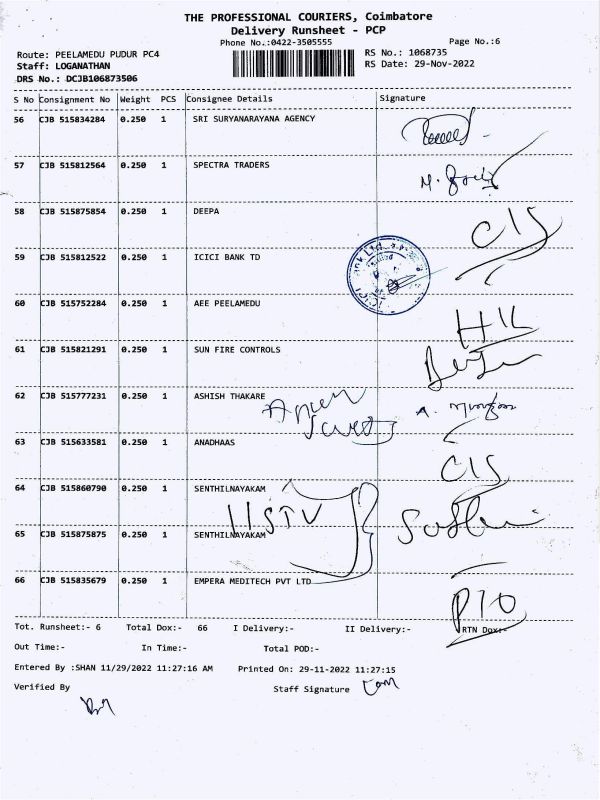 THE PROFESSIONAL COURIERS, Coimbatore
Delivery Runsheet - PCP
Phone No.:0422-3505555
Page No.:6
Route: PEELAMEDU PUDUR PC4
RS No.: 1068735
Staff: LOGANATHAN
RS Date: 29-Nov-2022
DRS No.: DCJB106873506
S No Consignment No Weight PCS Consignee Details Signature
56 CJB 515834284 0.250 1 SRI SURYANARAYANA AGENCY
57 CJB 515812564 0.250 1 SPECTRA TRADERS
58 CJB 515875854 0.250 1 DEEPA C/S
59 CJB 515812522 0.250 1 ICICI BANK TD
60 CJB 515752284 0.250 1 AEE PEELAMEDU
61 CJB 515821291 0.250 1 SUN FIRE CONTROLS
62 CJB 515777231 0.250 1 ASHISH THAKARE
63 CJB 515633581 0.250 1 ANADHAAS C/S
64 CJB 515860790 0.250 1 SENTHILNAYAKAM
65 CJB 515875875 0.250 1 SENTHILNAYAKAM
66 CJB 515835679 0.250 1 EMPERA MEDITECH PVT LTD
PTO
Tot. Runsheet:- 6 Total Dox:- 66 I Delivery:- II Delivery:- RTN Dox:-
Out Time:- In Time:- Total POD:-
Entered By :SHAN 11/29/2022 11:27:16 AM Printed On: 29-11-2022 11:27:15
Verified By Staff Signature